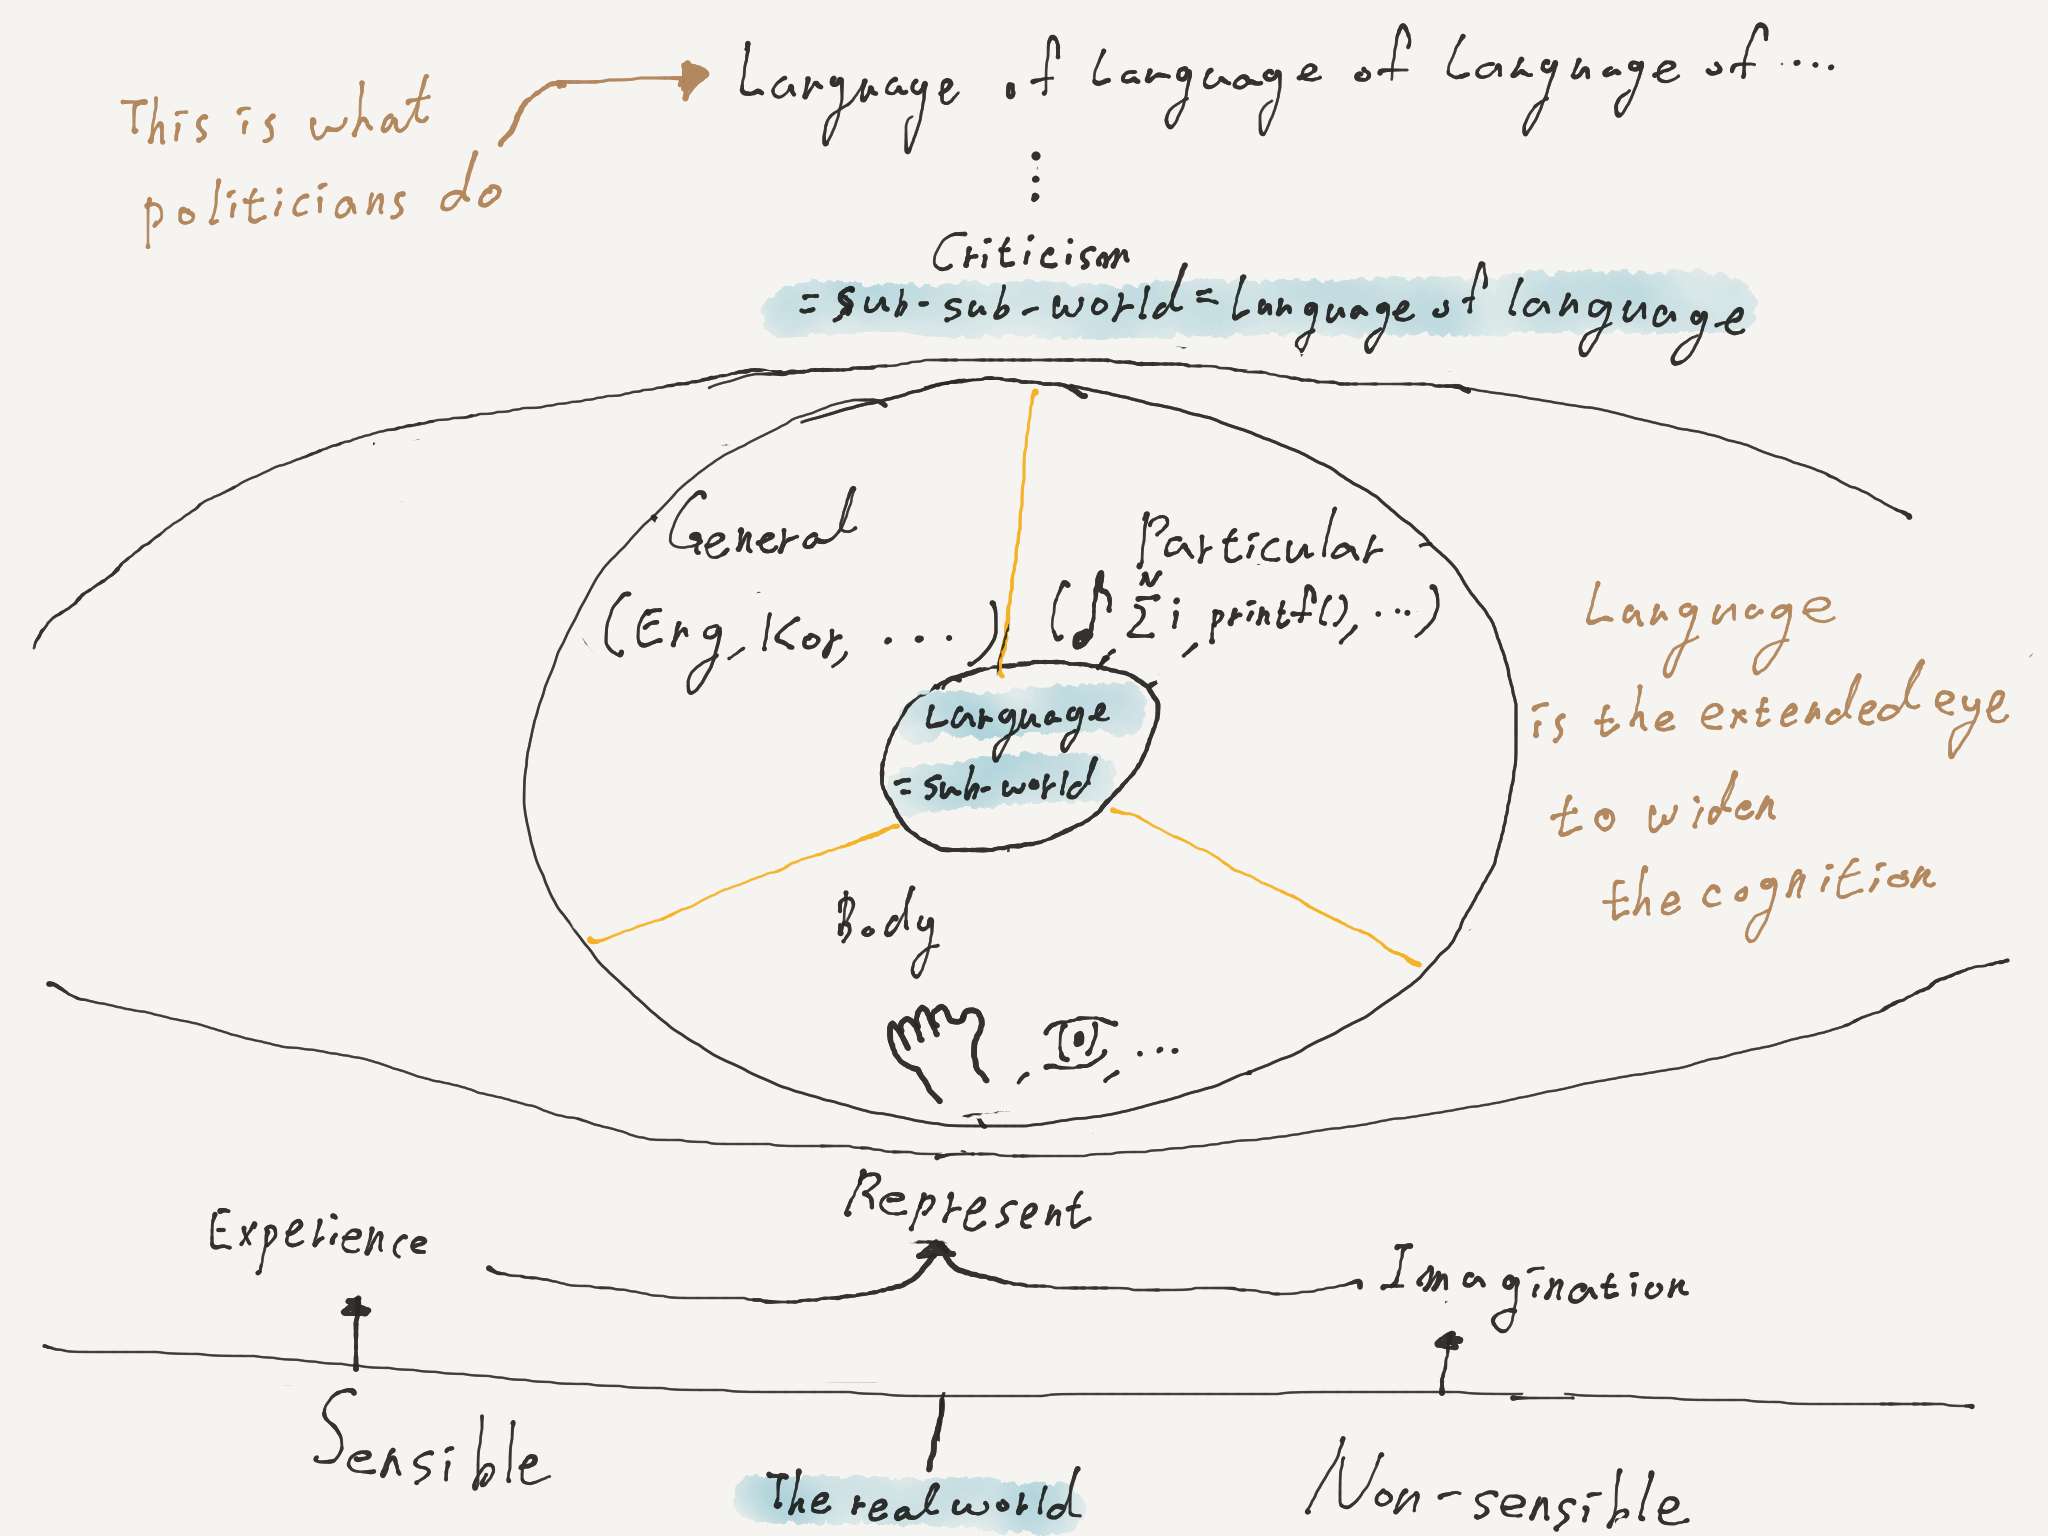 Language of Language of Language of ...
This is what
politicians do
Criticism
= sub-sub-world = Language of language
General
(Eng, Kor, ...)
Particular
(♪, N Σ i, printf(), ...)
Language
= sub-world
Body
, , ...
Language
is the extended eye
to widen
the cognition
Represent
Experience
Imagination
Sensible
The real world
Non-sensible